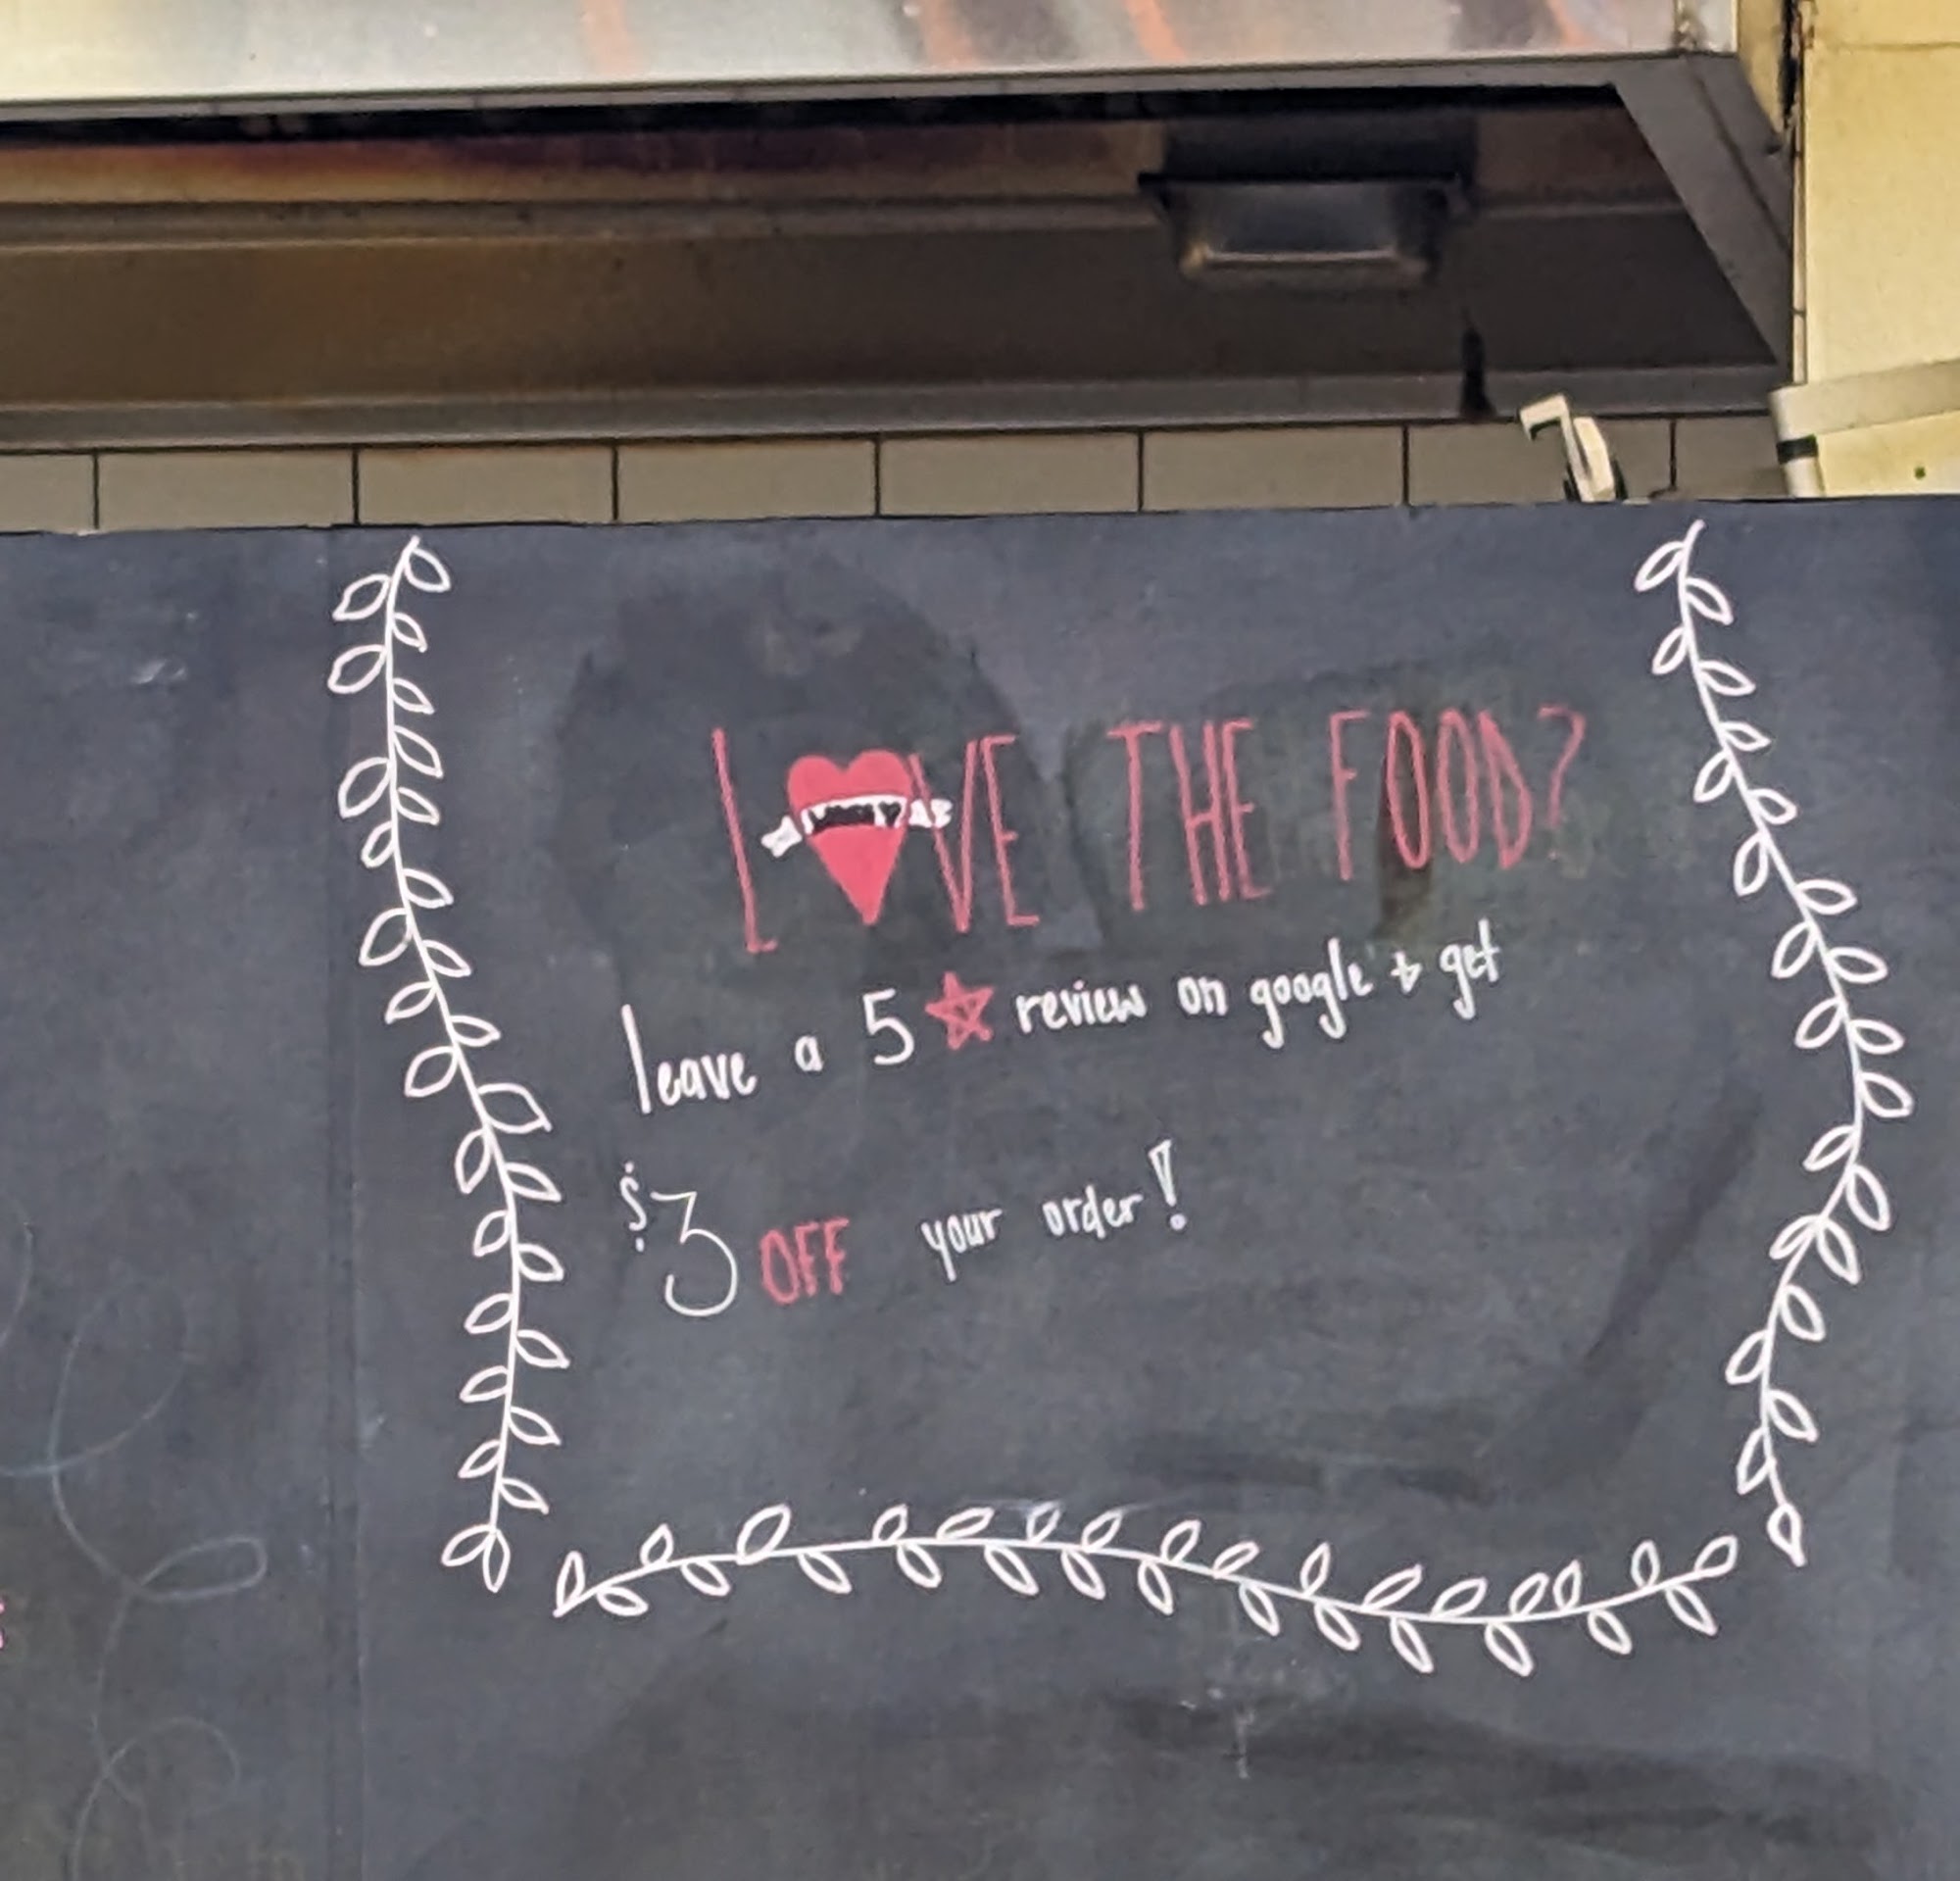 LOVE THE FOOD?
leave a 5 ★ review on google + get
$3 OFF your order!